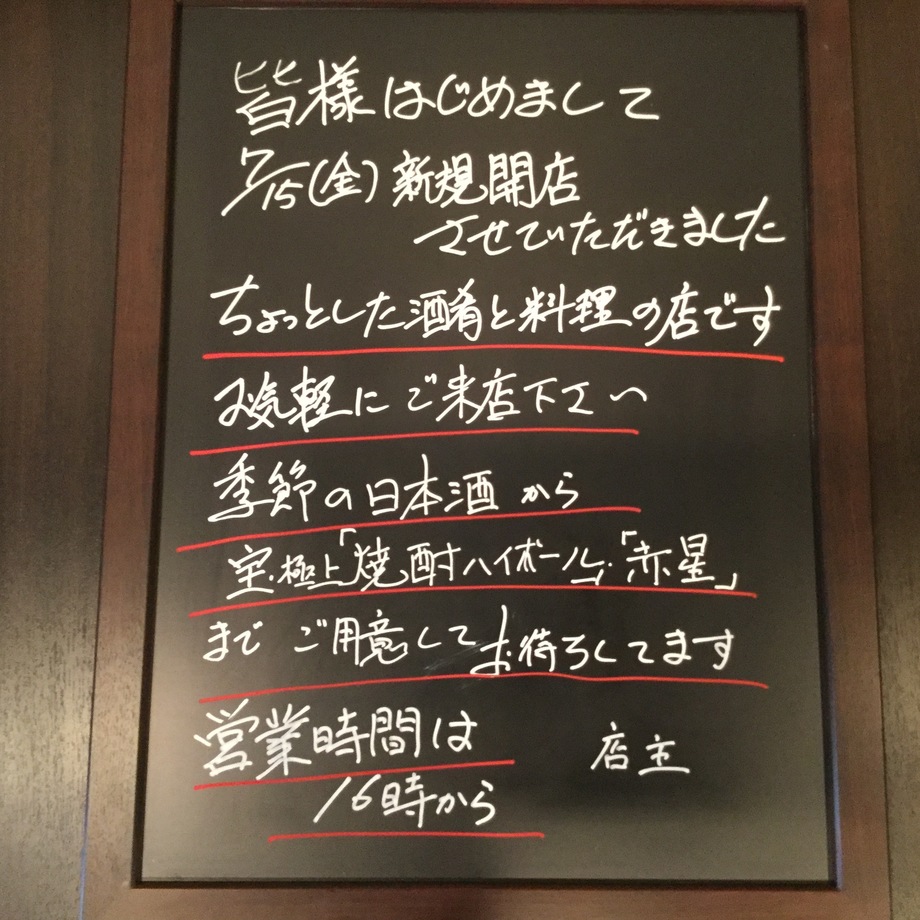 皆様はじめまして
7/15(金)新規開店
させていただきました
ちょっとした酒肴と料理の店です
お気軽にご来店下さい
季節の日本酒から
宝・極上「焼酎ハイボール」・「赤星」
まで ご用意してお待ちしてます
営業時間は
16時から
店主